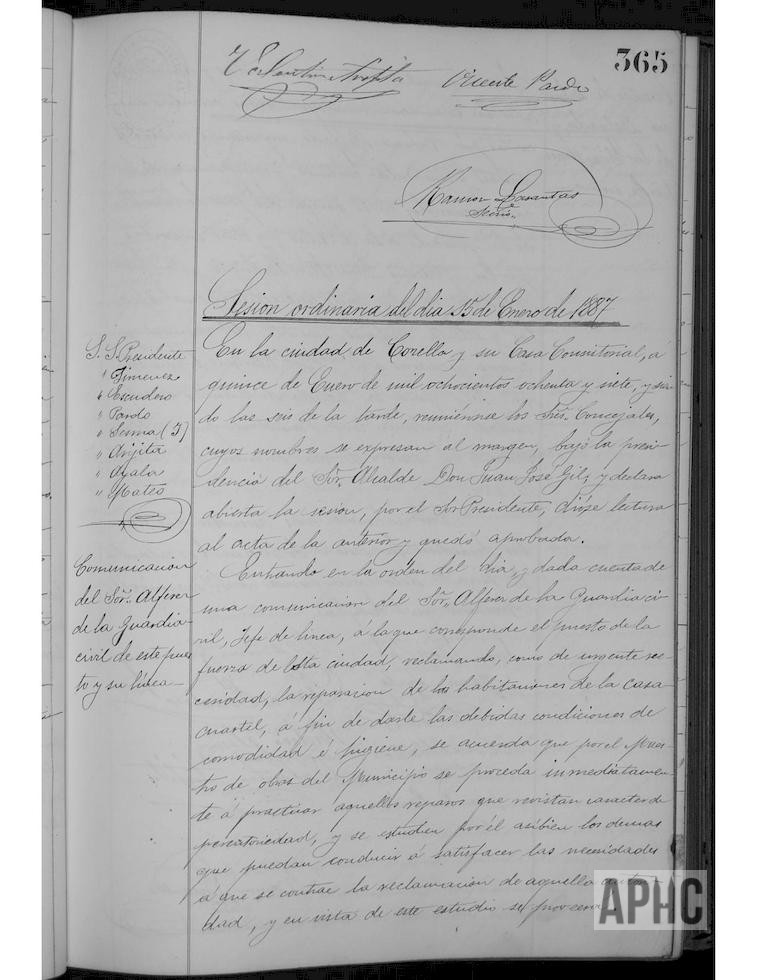 365
Valentin Arijita Vicente Pardo
Ramon Lasantas
Srio.
Sesion ordinaria del dia 15 de Enero de 1887
S. S. Presidente
" Jimenez
" Escudero
" Pardo
" Sesma (J)
" Arijita
" Ayala
" Mateo
En la ciudad de Corella y su Casa Consistorial, á
quince de Enero de mil ochocientos ochenta y siete, y sien-
do las seis de la tarde, reuniéronse los Sres. Concejales,
cuyos nombres se expresan al margen, bajo la presi-
dencia del Sor. Alcalde Don Juan José Gil; y declara
abierta la sesion, por el Sor Presidente, dióse lectura
al acta de la anterior y quedó aprobada.
Comunicacion
del Sor. Alferez
de la Guardia
civil de este pues-
to y su linea
Entrando en la orden del dia, y dada cuenta de
una comunicacion del Sor. Alferez de la Guardia ci-
vil, Jefe de linea, á la que corresponde el puesto de la
fuerza de esta ciudad, reclamando, como de urgente ne-
cesidad, la reparacion de las habitaciones de la casa
cuartel, á fin de darle las debidas condiciones de
comodidad é higiene, se acuerda que por el Maes-
tro de obras del Municipio se proceda inmediatamen-
te á practicar aquellos reparos que revistan caracter de
perentoriedad, y se estudien por él asibien los demas
que puedan conducir á satisfacer las necesidades
á que se contrae la reclamacion de aquella autori-
dad, y en vista de este estudio se proveerá
APHC